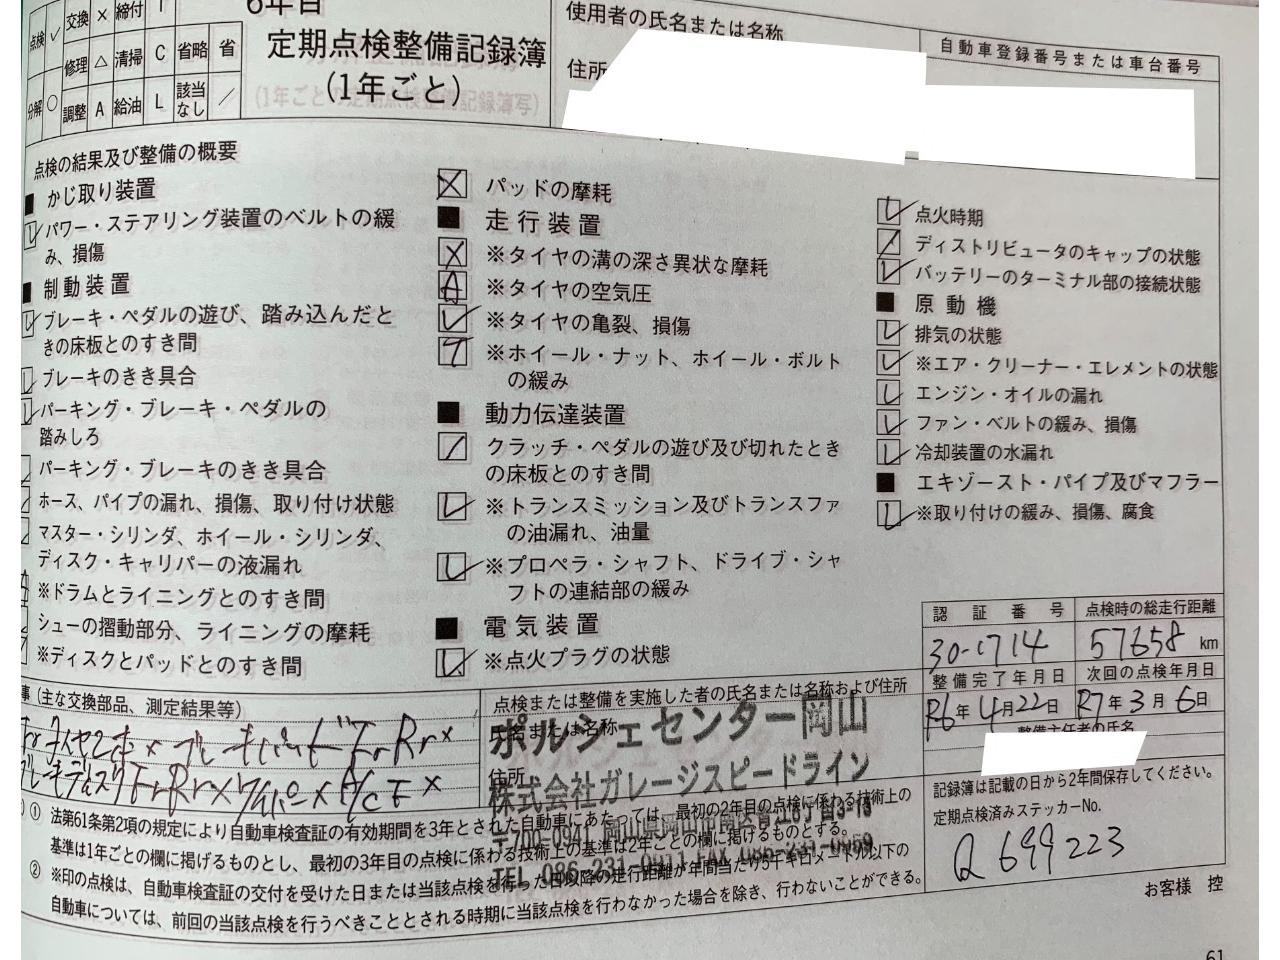 点検 ✓ 交換 × 締付 T
修理 △ 清掃 C 省略 省
分解 ○ 調整 A 給油 L 該当なし ／
6年目
定期点検整備記録簿
(1年ごと)
(1年ごとの定期点検整備記録簿写)
使用者の氏名または名称
住所
自動車登録番号または車台番号
点検の結果及び整備の概要
■ かじ取り装置
レ パワー・ステアリング装置のベルトの緩
み、損傷
■ 制動装置
レ ブレーキ・ペダルの遊び、踏み込んだと
きの床板とのすき間
レ ブレーキのきき具合
レ パーキング・ブレーキ・ペダルの
踏みしろ
パーキング・ブレーキのきき具合
ホース、パイプの漏れ、損傷、取り付け状態
マスター・シリンダ、ホイール・シリンダ、
ディスク・キャリパーの液漏れ
※ドラムとライニングとのすき間
シューの摺動部分、ライニングの摩耗
※ディスクとパッドとのすき間
× パッドの摩耗
■ 走行装置
× ※タイヤの溝の深さ異状な摩耗
A ※タイヤの空気圧
レ ※タイヤの亀裂、損傷
T ※ホイール・ナット、ホイール・ボルト
の緩み
■ 動力伝達装置
／ クラッチ・ペダルの遊び及び切れたとき
の床板とのすき間
レ ※トランスミッション及びトランスファ
の油漏れ、油量
レ ※プロペラ・シャフト、ドライブ・シャ
フトの連結部の緩み
■ 電気装置
レ ※点火プラグの状態
レ 点火時期
／ ディストリビュータのキャップの状態
レ バッテリーのターミナル部の接続状態
■ 原動機
レ 排気の状態
レ ※エア・クリーナー・エレメントの状態
レ エンジン・オイルの漏れ
レ ファン・ベルトの緩み、損傷
レ 冷却装置の水漏れ
■ エキゾースト・パイプ及びマフラー
レ ※取り付けの緩み、損傷、腐食
認証番号 点検時の総走行距離
30-1714 57658 km
整備完了年月日 次回の点検年月日
R6年4月22日 R7年3月6日
整備主任者の氏名
事(主な交換部品、測定結果等)
Frタイヤ2本× ブレーキパッドFrRr×
ブレーキディスクFrRr× ワイパー× A/C F×
点検または整備を実施した者の氏名または名称および住所
氏名または名称
ポルシェセンター岡山
住所
株式会社ガレージスピードライン
〒700-0941 岡山県岡山市南区青江6丁目3-13
TEL 086-231-0911 FAX 086-231-0959
記録簿は記載の日から2年間保存してください。
定期点検済みステッカーNo.
Q 699223
① 法第61条第2項の規定により自動車検査証の有効期間を3年とされた自動車にあたっては、最初の2年目の点検に係わる技術上の
基準は1年ごとの欄に掲げるものとし、最初の3年目の点検に係わる技術上の基準は2年ごとの欄に掲げるものとする。
② ※印の点検は、自動車検査証の交付を受けた日または当該点検を行った日以降の走行距離が年間当たり5千キロメートル以下の
自動車については、前回の当該点検を行うべきこととされる時期に当該点検を行わなかった場合を除き、行わないことができる。
お客様 控
61